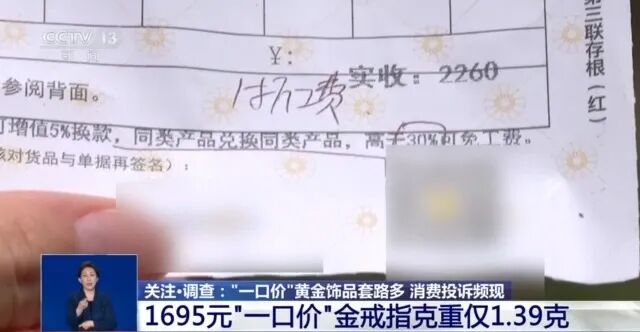 CCTV 13
新闻
第三联存根(红)
¥:
实收:2260
付工费
参阅背面。
增值5%换款,同类产品兑换同类产品,高于30%可免工费。
核对货品与单据再签名):
关注·调查:"一口价"黄金饰品套路多 消费投诉频现
1695元"一口价"金戒指克重仅1.39克